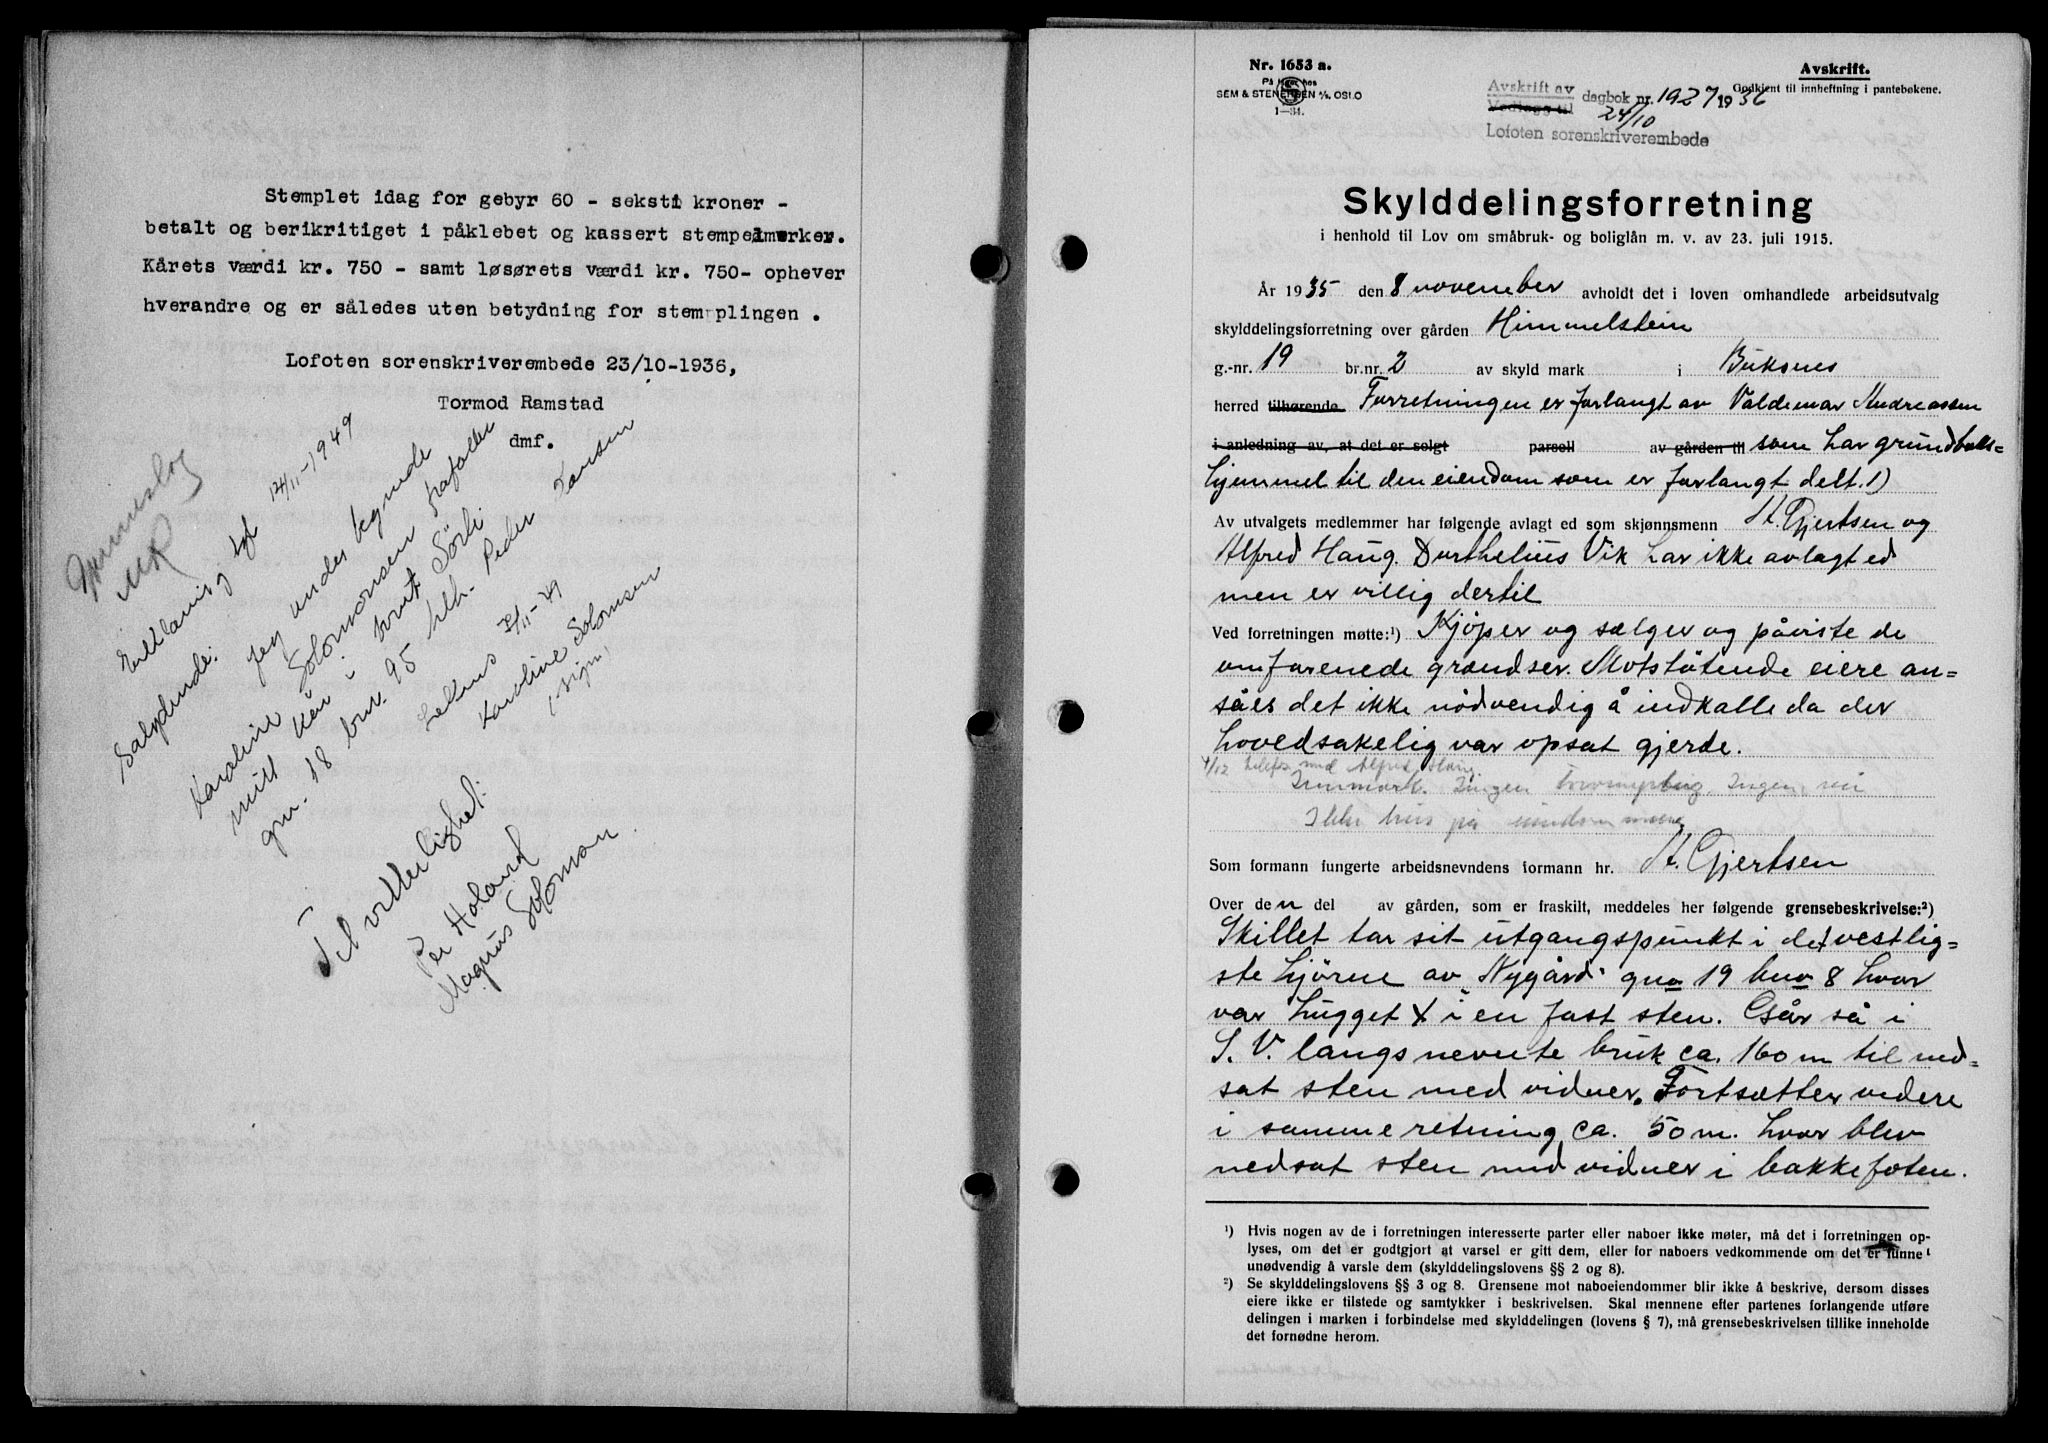 Stemplet idag for gebyr 60 - seksti kroner -
betalt og berikritiget i påklebet og kassert stempelmerker.
Kårets værdi kr. 750 - samt løsørets værdi kr. 750- ophever
hverandre og er således uten betydning for stemplingen .
Lofoten sorenskriverembede 23/10-1936,
Tormod Ramstad
dmf.
Erklæring tgl 24/11-1949
Salydende:
Jeg undertegnede
Karoline Solomonsen frafaller
mitt kår i bruket Sörli
gnr. 18 bnr. 95 tilh. Peder Hansen
2/11-49
Karoline Solomonsen
(sign)
Til vitterlighet:
Per Holand
Magnus Solomon
Nr. 1653 a.
På lager hos
SEM & STENERSEN A/S, OSLO
1—34.
Avskrift.
Godkjent til innheftning i pantebøkene.
Avskrift av
Vedlegg til
dagbok nr. 1927 1936
24/10
Lofoten sorenskriverembede
Skylddelingsforretning
i henhold til Lov om småbruk- og boliglån m. v. av 23. juli 1915.
År 1935 den 8 november avholdt det i loven omhandlede arbeidsutvalg
skylddelingsforretning over gården Himmelstein
g.-nr. 19 br.nr. 2 av skyld mark i Buksnes
herred tilhørende Forretningen er forlangt av Valdemar Andreassen
i anledning av, at det er solgt parsell av gården til som har grundboks=
hjemmel til den eiendom som er forlangt delt. 1)
Av utvalgets medlemmer har følgende avlagt ed som skjønnsmenn A. Gjertsen og
Alfred Haug. Dorthelius Vik har ikke avlagt ed
men er villig dertil
Ved forretningen møtte:¹) Kjøper og sælger og påviste de
omforenede grændser. Motstøtende eiere an=
såes det ikke nödvendig å indkalle da der
hovedsakelig var opsat gjerde.
4/12 telefon med Alfred Haug.
Innmark. Ingen Ingen vei
Ikke hus på eiendommen
Som formann fungerte arbeidsnevndens formann hr. A. Gjertsen
Over den del av gården, som er fraskilt, meddeles her følgende grensebeskrivelse:²)
Skillet tar sit utgangspunkt i det vestlig=
ste hjörne av "Nygård" gno 19 bno 8 hvor
var hugget X i en fast sten. Går så i
S. V. langs nevnte bruk ca. 160 m til ned=
sat sten med vidner. Fortsætter videre
i samme retning ca. 50 m. hvor blev
nedsat sten med vidner i bakkefoten.
¹) Hvis nogen av de i forretningen interesserte parter eller naboer ikke møter, må det i forretningen op-
lyses, om det er godtgjort at varsel er gitt dem, eller for naboers vedkommende om det er funnet
unødvendig å varsle dem (skylddelingslovens §§ 2 og 8).
²) Se skylddelingslovens §§ 3 og 8. Grensene mot naboeiendommer blir ikke å beskrive, dersom disses
eiere ikke er tilstede og samtykker i beskrivelsen. Skal mennene efter partenes forlangende utføre
delingen i marken i forbindelse med skylddelingen (lovens § 7), må grensebeskrivelsen tillike inneholde
det fornødne herom.